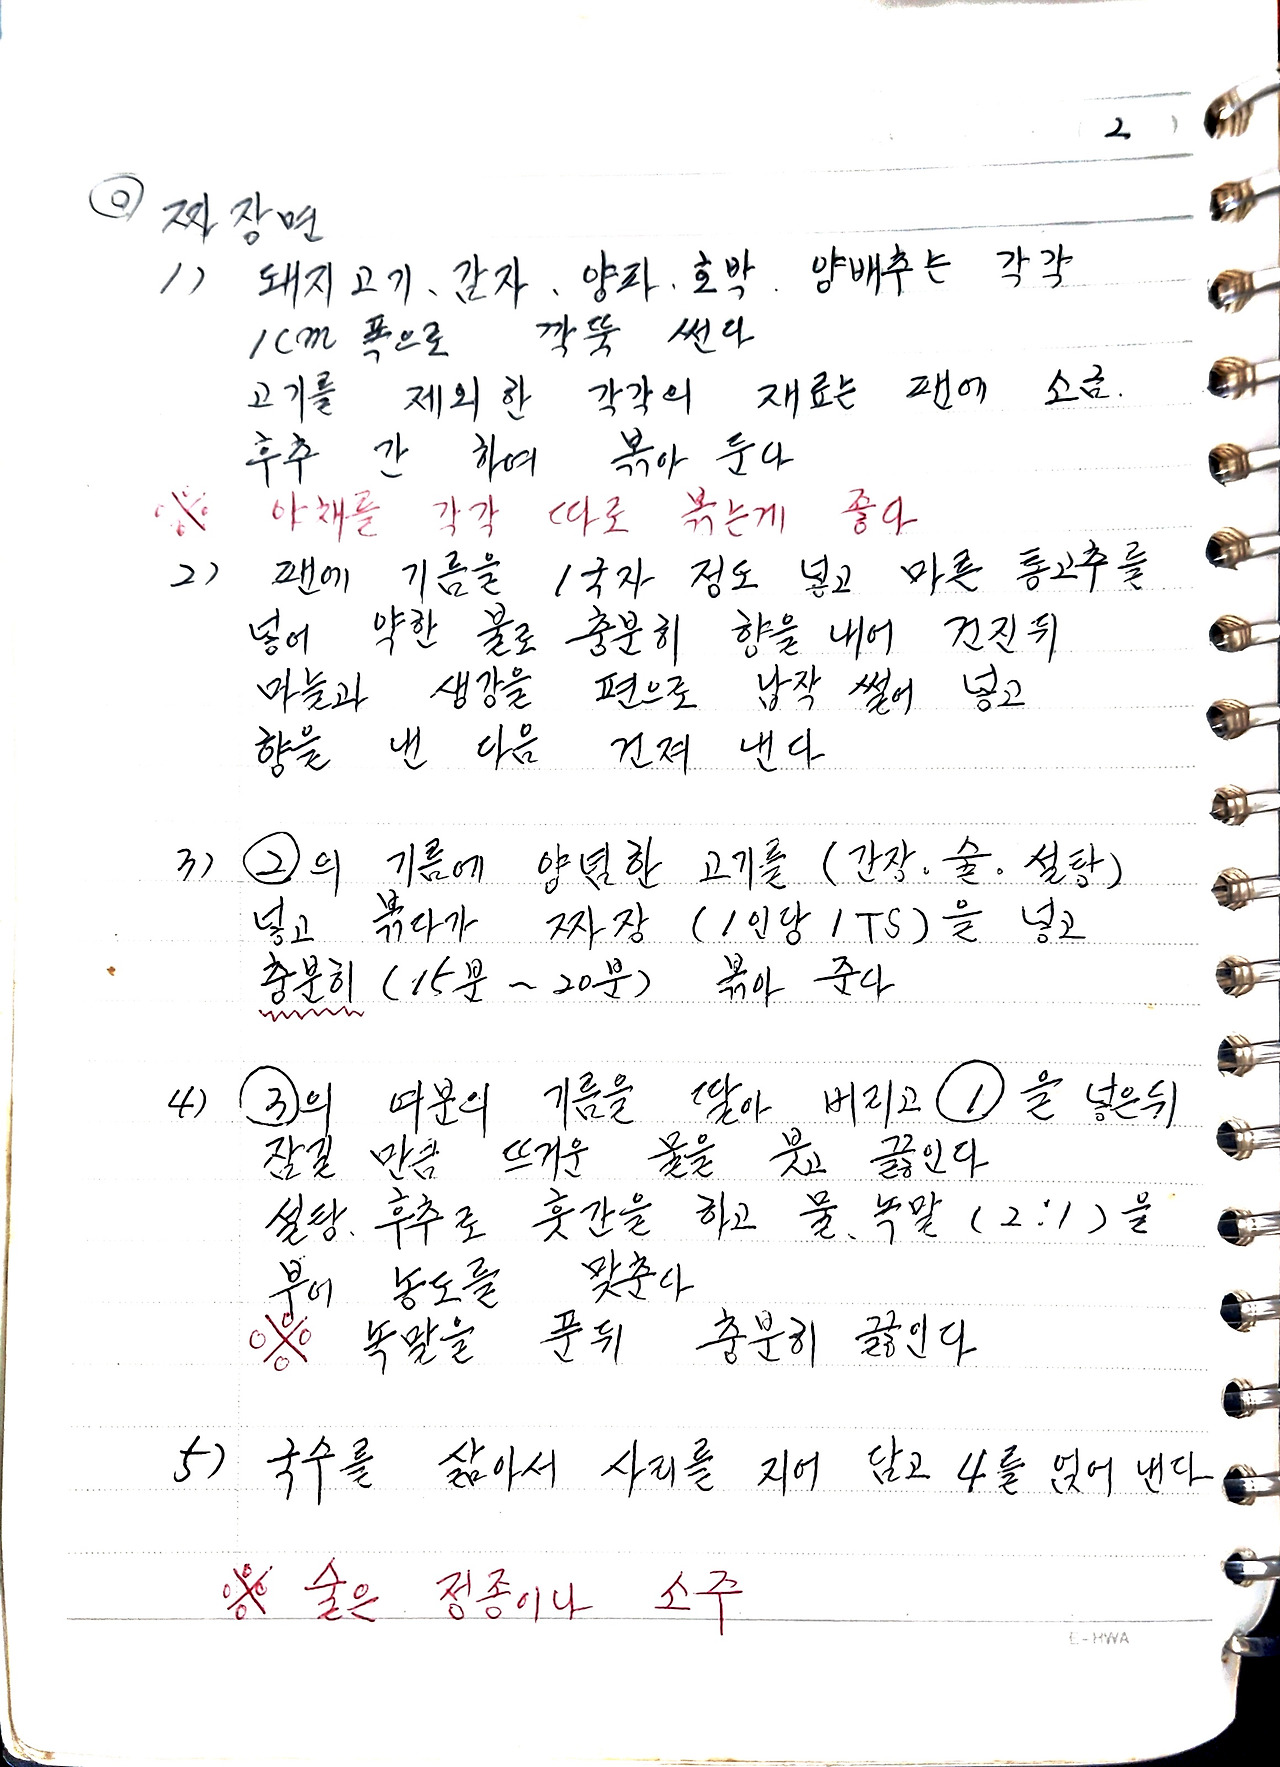 2
◎ 짜장면
1) 돼지고기、감자、양파、호박、양배추는 각각
1cm 폭으로 깍뚝 썬다
고기를 제외한 각각의 재료는 팬에 소금.
후추 간 하여 볶아 둔다
※ 야채를 각각 따로 볶는게 좋다
2) 팬에 기름을 1국자 정도 넣고 마른 통고추를
넣어 약한 불로 충분히 향을 내어 건진뒤
마늘과 생강을 편으로 납작 썰어 넣고
향을 낸 다음 건져 낸다
3) ②의 기름에 양념한 고기를 (간장.술.설탕)
넣고 볶다가 짜장 (1인당 1TS)을 넣고
충분히 (15분~20분) 볶아 준다
4) ③의 여분의 기름을 딸아 버리고 ①을 넣은뒤
잠길 만큼 뜨거운 물을 붓고 끓인다
설탕、후추로 훗간을 하고 물、녹말 (2:1)을
부어 농도를 맞춘다
※ 녹말을 푼뒤 충분히 끓인다
5) 국수를 삶아서 사리를 지어 담고 4를 얹어 낸다
※ 술은 정종이나 소주
E-HWA